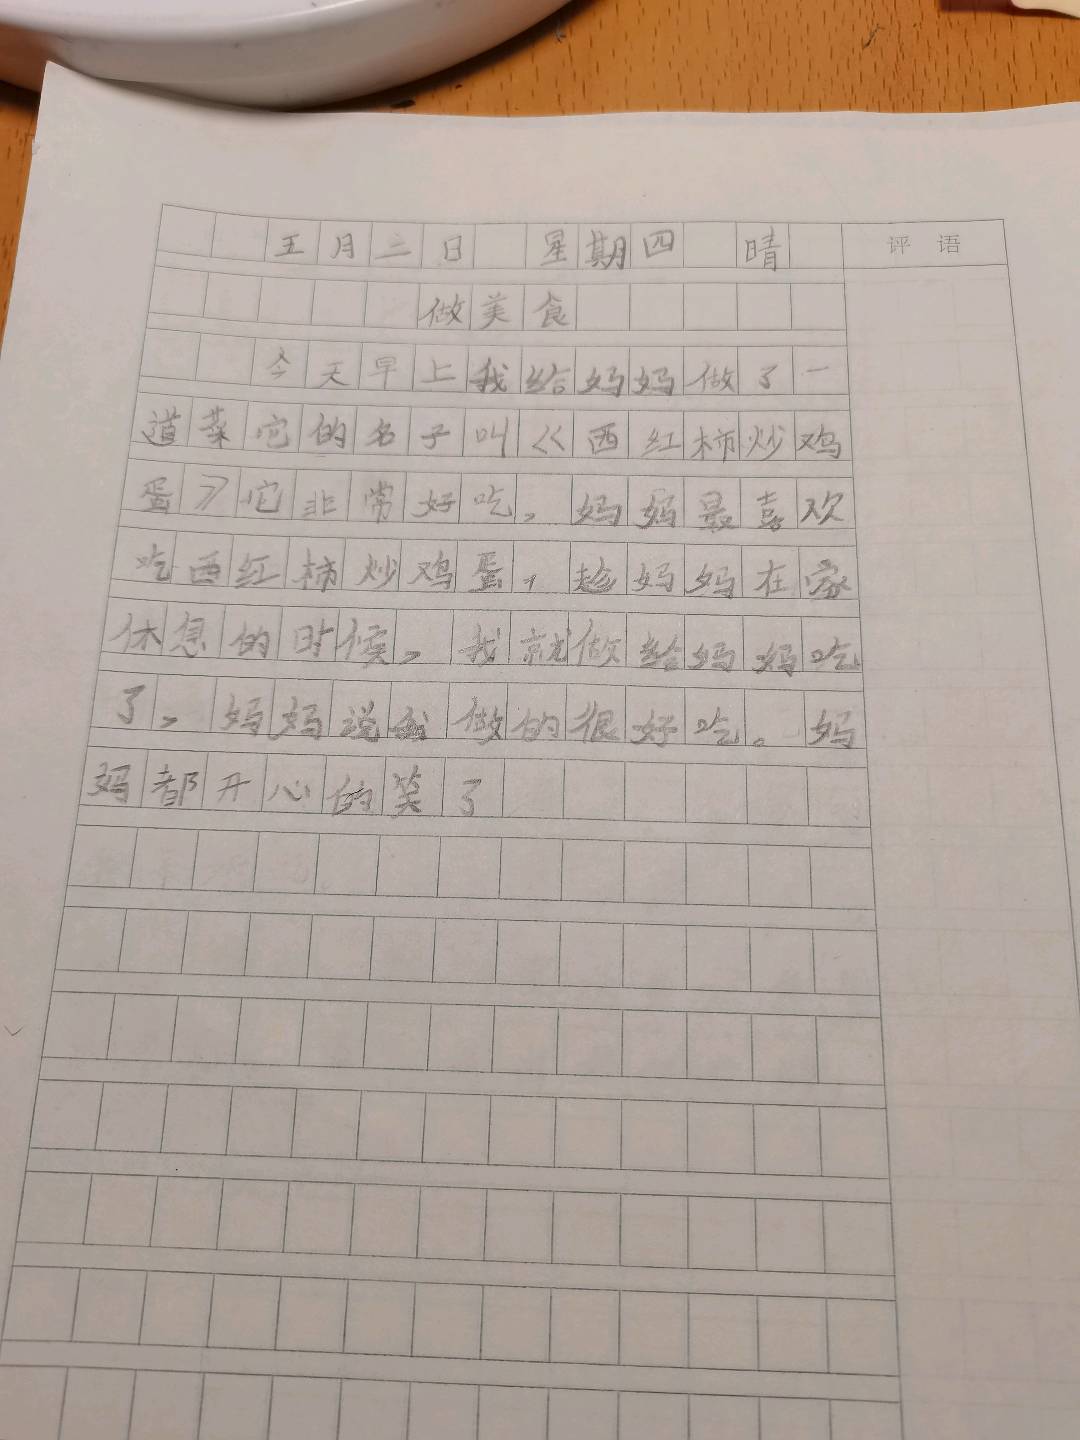 五月二日 星期四 晴 评语
做美食
今天早上我给妈妈做了一
道菜它的名子叫《西红柿炒鸡
蛋》它非常好吃，妈妈最喜欢
吃西红柿炒鸡蛋，趁妈妈在家
休息的时候，我就做给妈妈吃
了，妈妈说我做的很好吃。妈
妈都开心的笑了